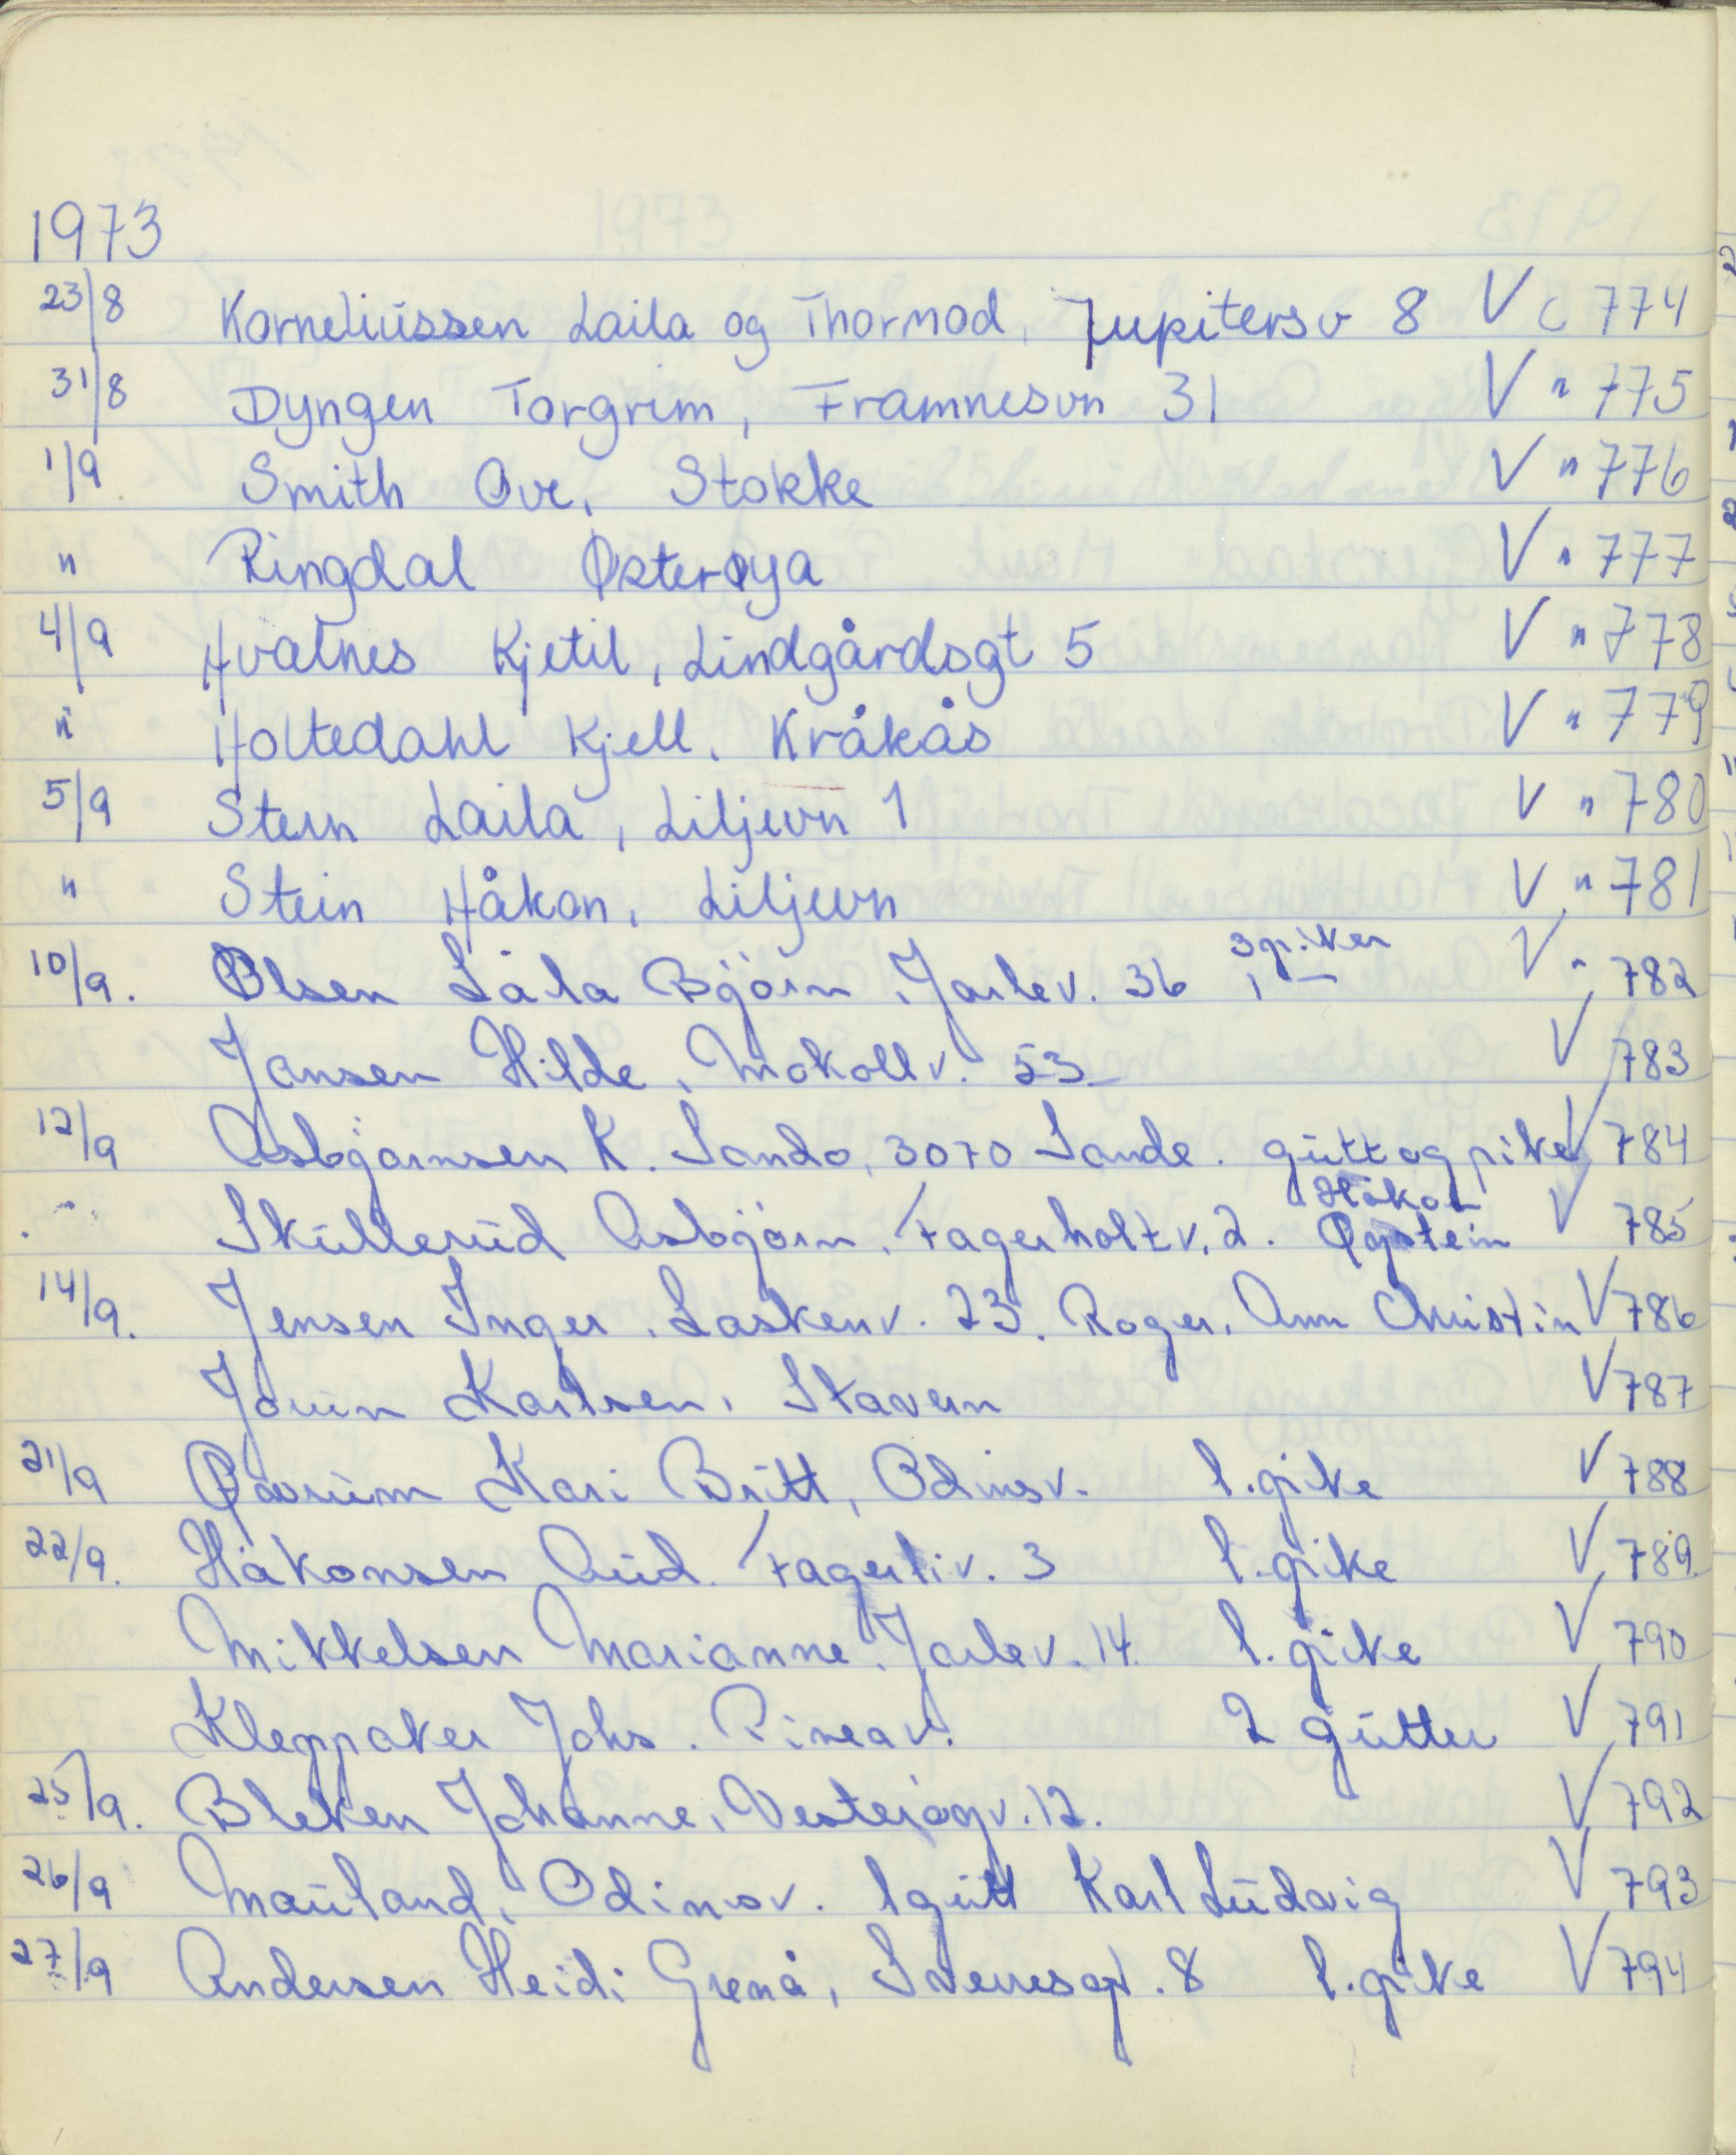 1973
23/8 Korneliussen Laila og Thormod, Jupitersv 8 V C 774
31/8 Dyngen Torgrim, Framnesvn 31 V " 775
1/9 Smith Ove, Stokke V " 776
" Ringdal Østerøya V " 777
4/9 Hvatnes Kjetil, Lindgårdsgt 5 V " 778
" Holtedahl Kjell, Kråkås V " 779
5/9 Stein Laila, Liljevn 1 V " 780
" Stein Håkon, Liljevn V " 781
3 piker
10/9. Olsen Laila Bjørn, Jarlev. 36 1 — V " 782
Jansen Hilde, Mokollv. 53 V 783
12/9 Asbjørnsen K. Sando, 3070 Sande. gutt og pike V 784
Håkon
" Skullerud Asbjørn, Fagerholtv. 2. Øystein V 785
14/9. Jensen Inger, Laskenv. 23. Roger, Ann Christin V 786
Karlsen, Stavern V 787
21/9 Kari Britt, Odinsv. 1. pike V 788
22/9. Håkonsen Aud. Fagerliv. 3 1. pike V 789.
Mikkelsen Marianne, Jarlev. 14. 1. pike V 790
Kleppaker Johs. Pineav. 2 gutter V 791
25/9. Bleken Johanne, Vesterøyv. 12. V 792
26/9 Mauland, Odinsv. 1 gutt Karl Ludvig V 793
27/9 Andersen Heidi Grenå, Sverresgt. 8 1. pike V 794